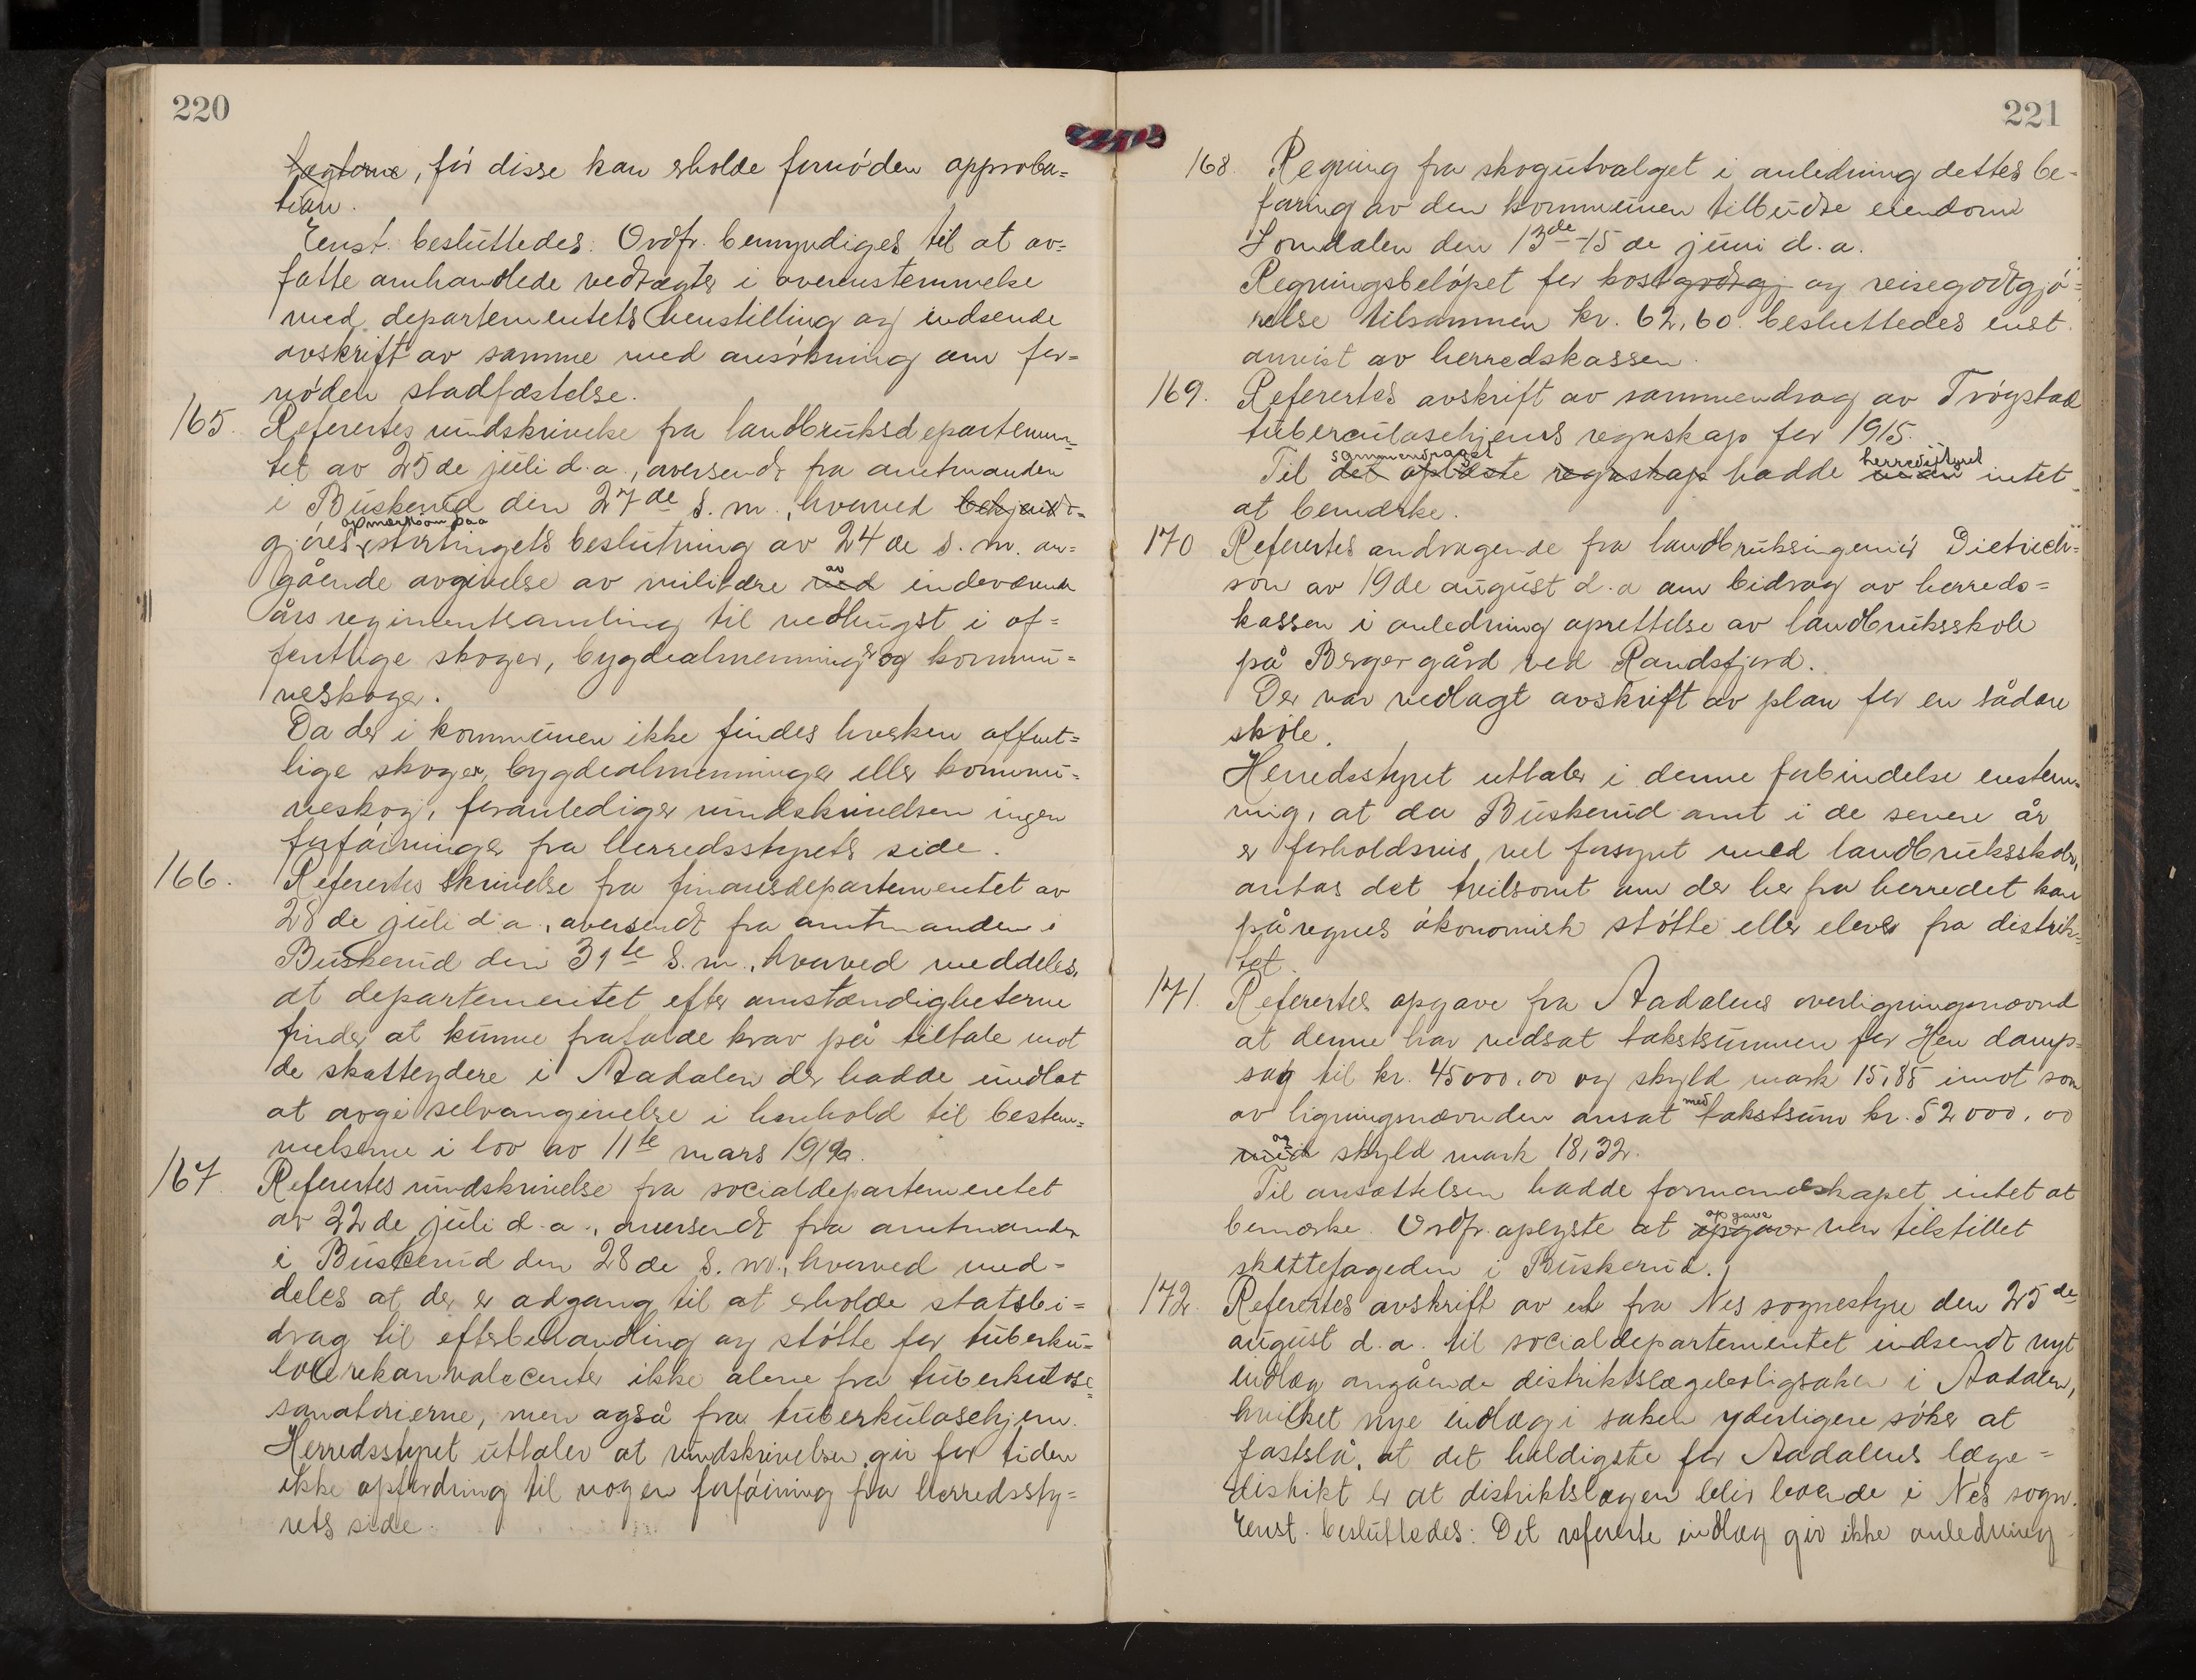 220
tægterne, før disse kan erholde fornøden approba=
tion.
Enst. besluttedes: Ordfr. bemyndiges til at av=
fatte omhandlede vedtægter i overenstemmelse
med departementets henstilling og indsende
avskrift av samme med ansøkning om for=
nøden stadfæstelse.
165. Referertes rundskrivelse fra landbruksdepartemen=
tet av 25de juli d.a., oversendt fra amtmanden
i Buskerud den 27de s.m., hvorved bekjendt=
opmerksom paa
gjøres stortingets beslutning av 24de s.m. an=
gående avgivelse av militære ved av indeværende
års regimentsamling til vedhugst i of=
fentlige skoger, bygdealmenninger og kommu=
neskoger.
Da der i kommunen ikke findes hverken offent=
lige skoger, bygdealmenninger eller kommu=
neskog, foranlediger rundskrivelsen ingen
forføininger fra herredsstyrets side.
166. Referertes skrivelse fra finansdepartementet av
28de juli d.a., oversendt fra amtmanden i
Buskerud den 31te s.m., hvorved meddeles,
at departementet efter omstændigheterne
finder at kunne frafalde krav på tiltale mot
de skatteydere i Aadalen der hadde undlat
at avgi selvangivelse i henhold til bestem=
melserne i lov av 11te mars
167 Referertes rundskrivelse fra socialdepartementet
av 22de juli d.a., oversendt fra amtmanden
i Buskerud den 28de s.m., hvorved med=
deles at der er adgang til at erholde statsbi=
drag til efterbehandling og støtte for tuberku=
løse rekonvalecenter ikke alene fra tuberkulose=
sanatorierne, men også fra tuberkulosehjem.
Herredsstyret uttaler at rundskrivelsen gir for tiden
ikke opfordring til nogen forføining fra herredssty=
rets side.
221
168. Regning fra skogutvalget i anledning dettes be=
faring av den kommunen tilbudte eiendom
Somdalen den 13de-15de juni d.a.
Regningsbeløpet for kostgodtgj og reisegodtgjø=
relse tilsammen kr. 62,60 besluttedes enst.
anvist av herredskassen.
169. Referertes avskrift av sammendrag av Trøgstad
tuberculosehjems regnskap for 1915.
sammendraget herredsstyret
Til det oplæste regnskap hadde intet
at bemerke.
170 Referertes andragende fra landbruksingeniør Dietrich=
son av 19de august d.a om bidrag av herreds=
kassen i anledning oprettelse av landbruksskole
på Berger gård ved Randsfjord.
Der var vedlagt avskrift av plan for en sådan
skole.
Herredsstyret uttaler i denne forbindelse enstem=
mig, at da Buskerud amt i de senere år
er forholdsvis vel forsynt med landbruksskoler,
antas det tvilsomt om der her fra herredet kan
påregnes økonomisk støtte eller elever fra distrik=
tet.
171. Referertes opgave fra Aadalens overligningsnævnd
at denne har nedsat takstsummen for Hen damp=
sag til kr. 45000.00 og skyld mark 15,85 imot som
av ligningsnævnden ansat med takstsum kr. 52000.00
og
med skyld mark 18,32.
Til ansættelsen hadde formandskapet intet at
opgave
bemerke. Ordfr. oplyste at opgaver var tilstillet
skattefogeden i Buskerud.
172. Referertes avskrift av et fra Nes sognestyre den 25de
august d.a. til socialdepartementet indsendt nyt
indlæg angående distriktslægeboligsaken i Aadalen,
hvilket nye indlæg i saken yderligere søker at
fastslå, at det heldigste for Aadalens læge=
distrikt er at distriktslægen blir boende i Nes sogn.
Enst. besluttedes: Det refererte indlæg gir ikke anledning